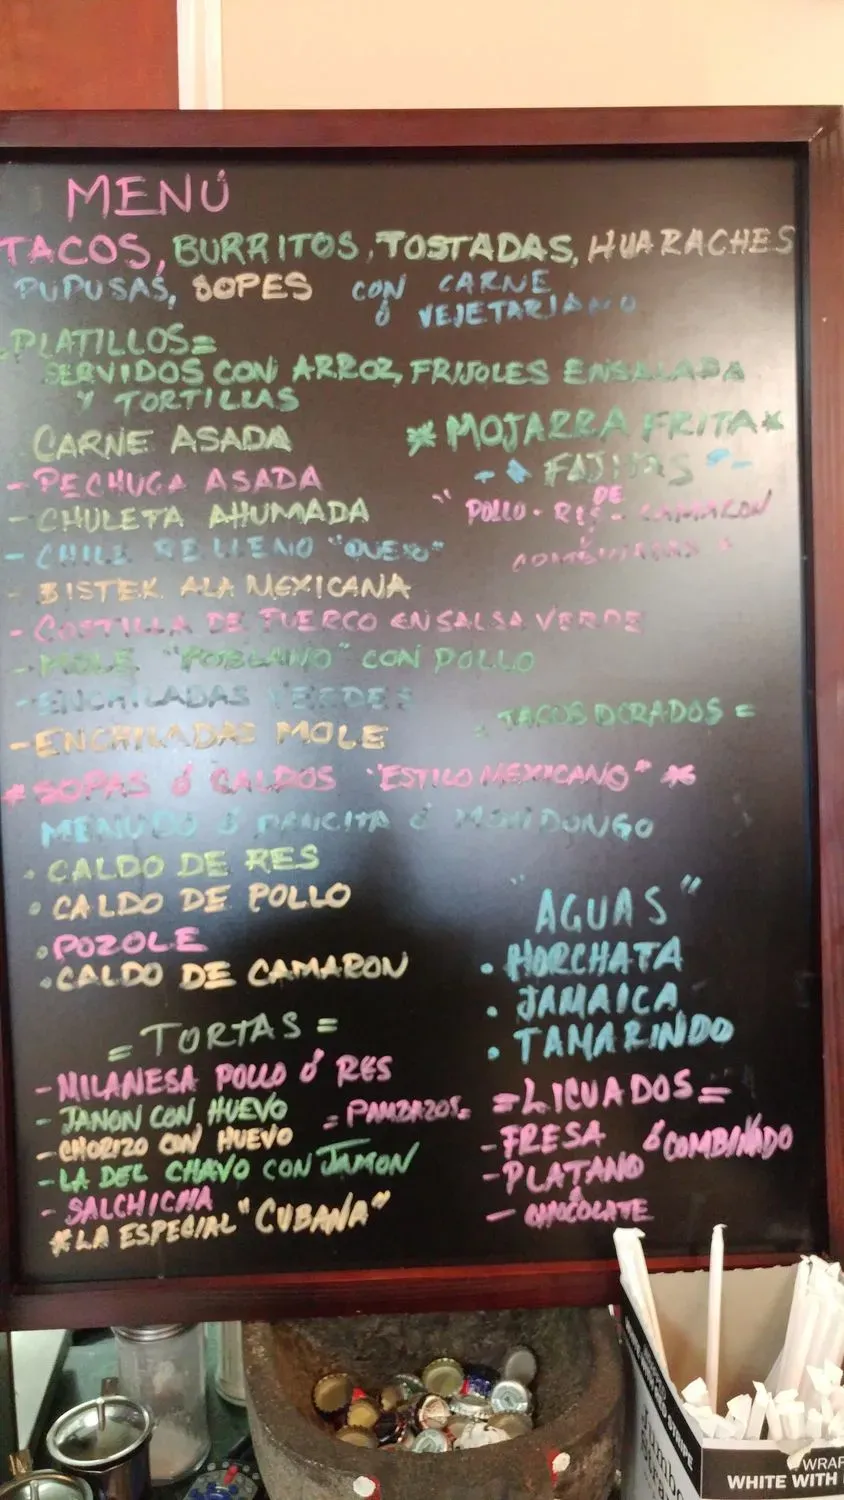 MENÚ
TACOS, BURRITOS, TOSTADAS, HUARACHES
PUPUSAS, SOPES CON CARNE
Ó VEJETARIANO
PLATILLOS=
SERVIDOS CON ARROZ, FRIJOLES ENSALADA
Y TORTILLAS
CARNE ASADA
- PECHUGA ASADA
- CHULETA AHUMADA
- CHILE RELLENO "QUESO"
- BISTEK ALA MEXICANA
- COSTILLA DE PUERCO EN SALSA VERDE
- MOLE "POBLANO" CON POLLO
- ENCHILADAS VERDES
- ENCHILADAS MOLE
* MOJARRA FRITA *
FAJITAS
DE
POLLO - RES - CAMARON
COMBINADAS
TACOS DORADOS =
* SOPAS Ó CALDOS "ESTILO MEXICANO" *
MENUDO Ó PANCITA Ó MONDONGO
• CALDO DE RES
• CALDO DE POLLO
• POZOLE
• CALDO DE CAMARON
"AGUAS"
• HORCHATA
• JAMAICA
• TAMARINDO
= TORTAS =
- MILANESA POLLO Ó RES
- JANON CON HUEVO
- CHORIZO CON HUEVO
- LA DEL CHAVO CON JAMON
- SALCHICHA
* LA ESPECIAL "CUBANA"
= PAMBAZOS =
= LICUADOS =
- FRESA Ó COMBINADO
- PLATANO
- CHOCOLATE
WRAP
WHITE WITH